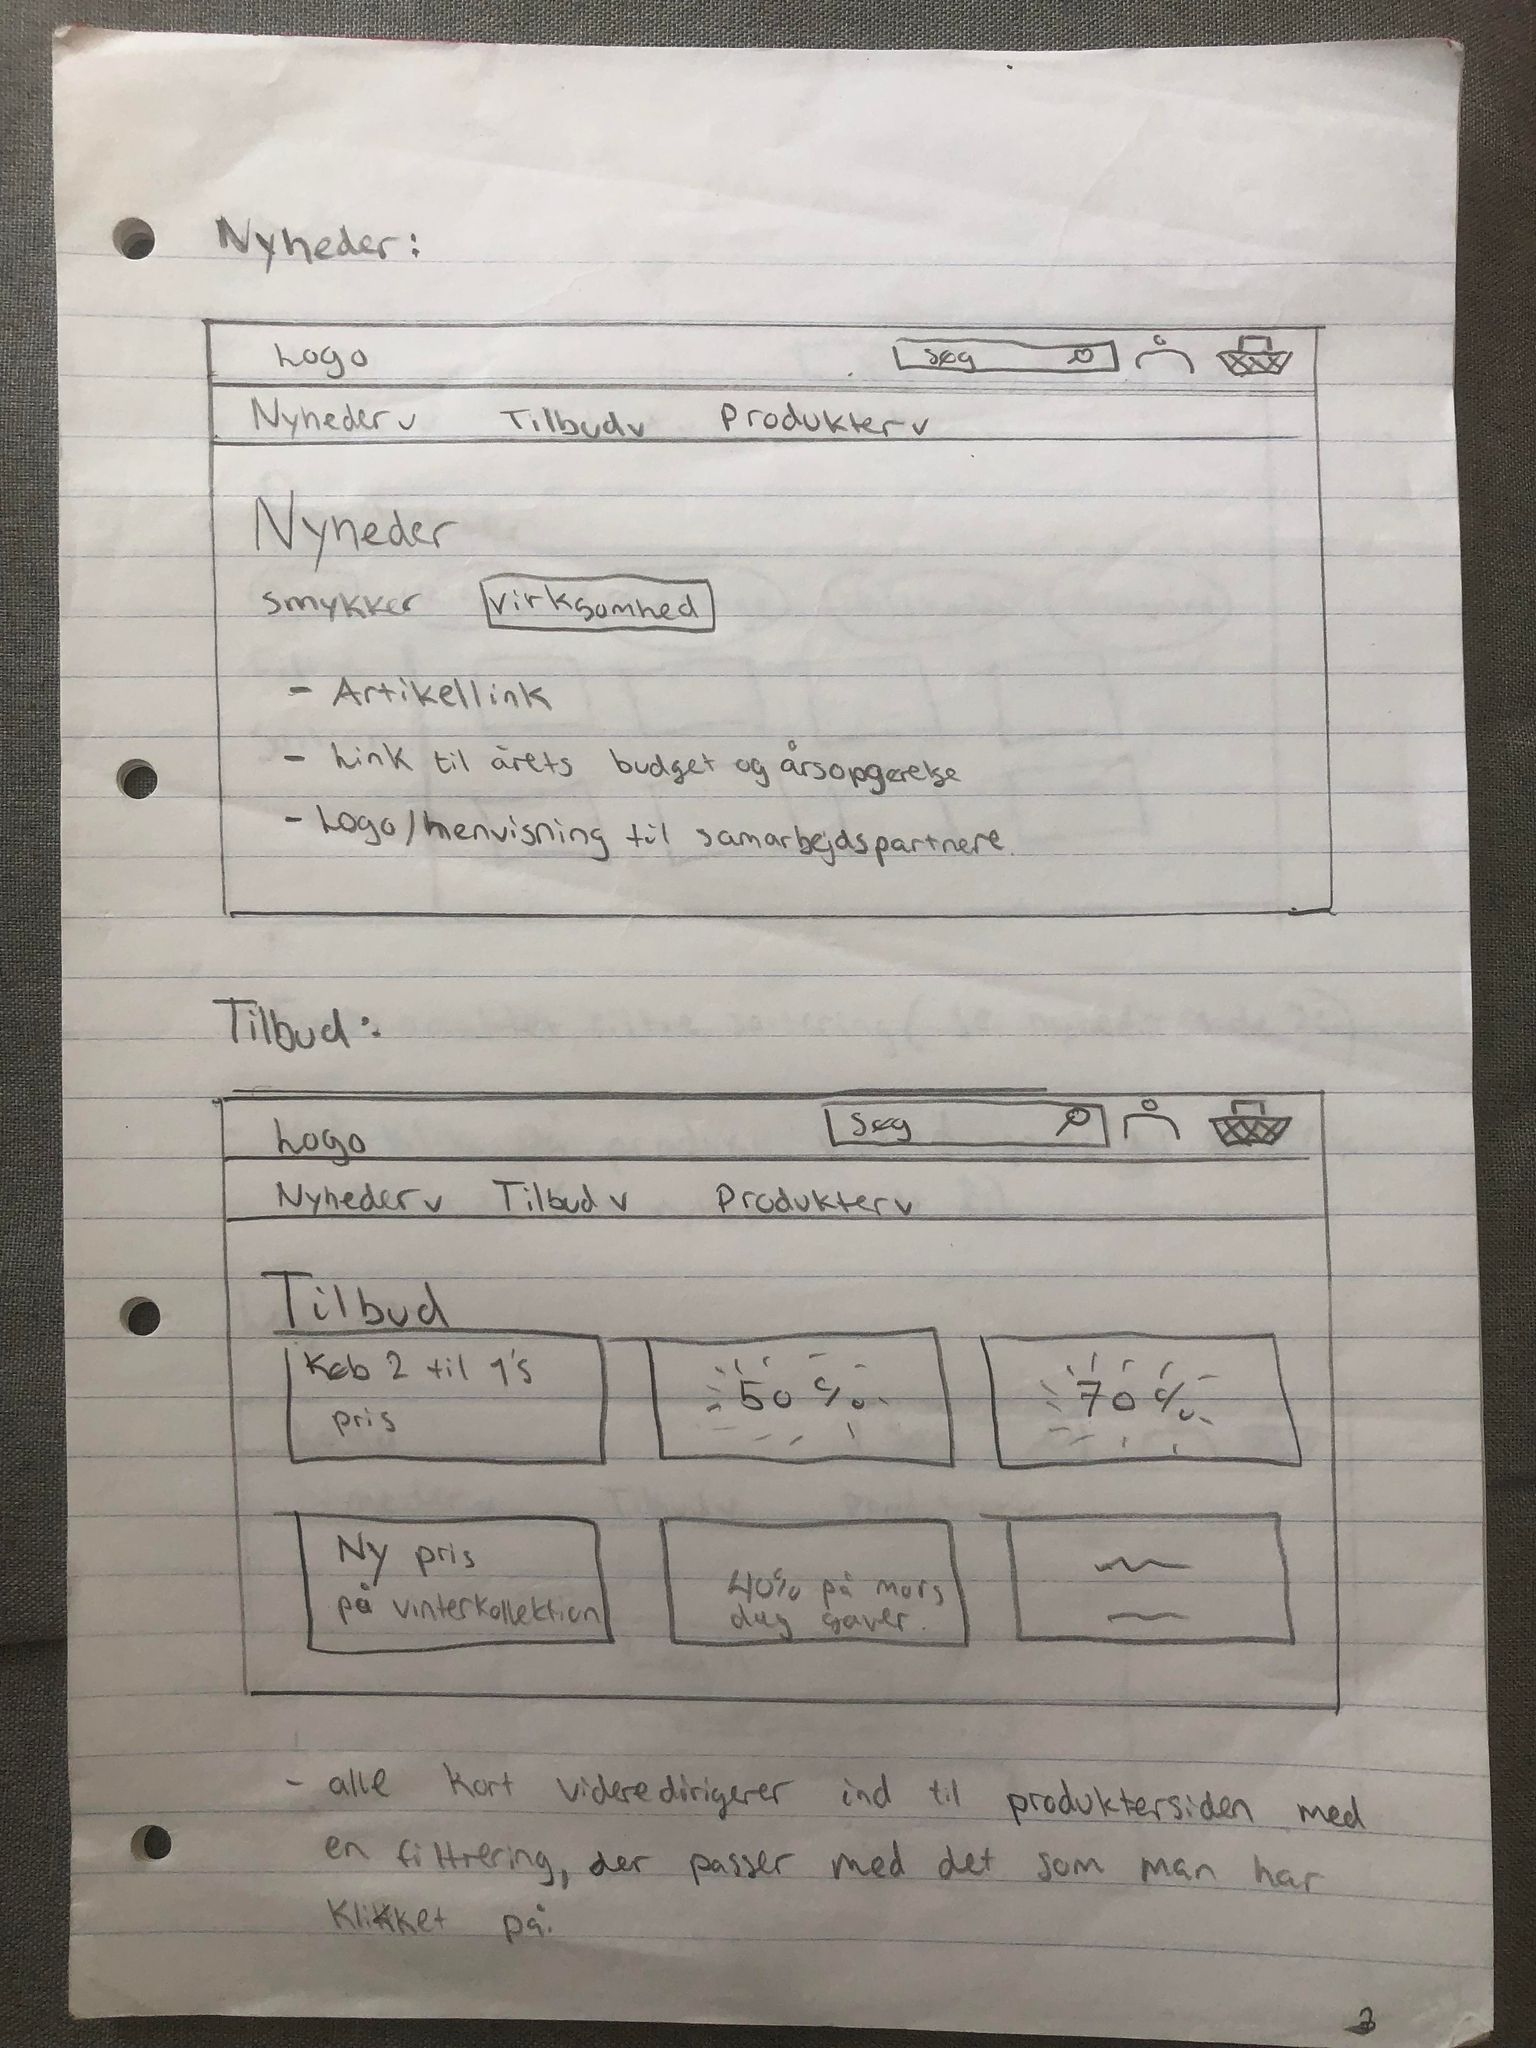 Nyheder:
Logo
Søg
Nyheder v Tilbud v Produkter v
Nyheder
smykker virksomhed
- Artikellink
- Link til årets budget og årsopgørelse
- Logo/henvisning til samarbejdspartnere.
Tilbud:
Logo
Søg
Nyheder v Tilbud v Produkter v
Tilbud
Køb 2 til 1's
pris
50%
70%
Ny pris
på vinterkollektion
40% på mors
dag gaver.
- alle kort videredirigerer ind til produktersiden med
en filtrering, der passer med det som man har
klikket på.